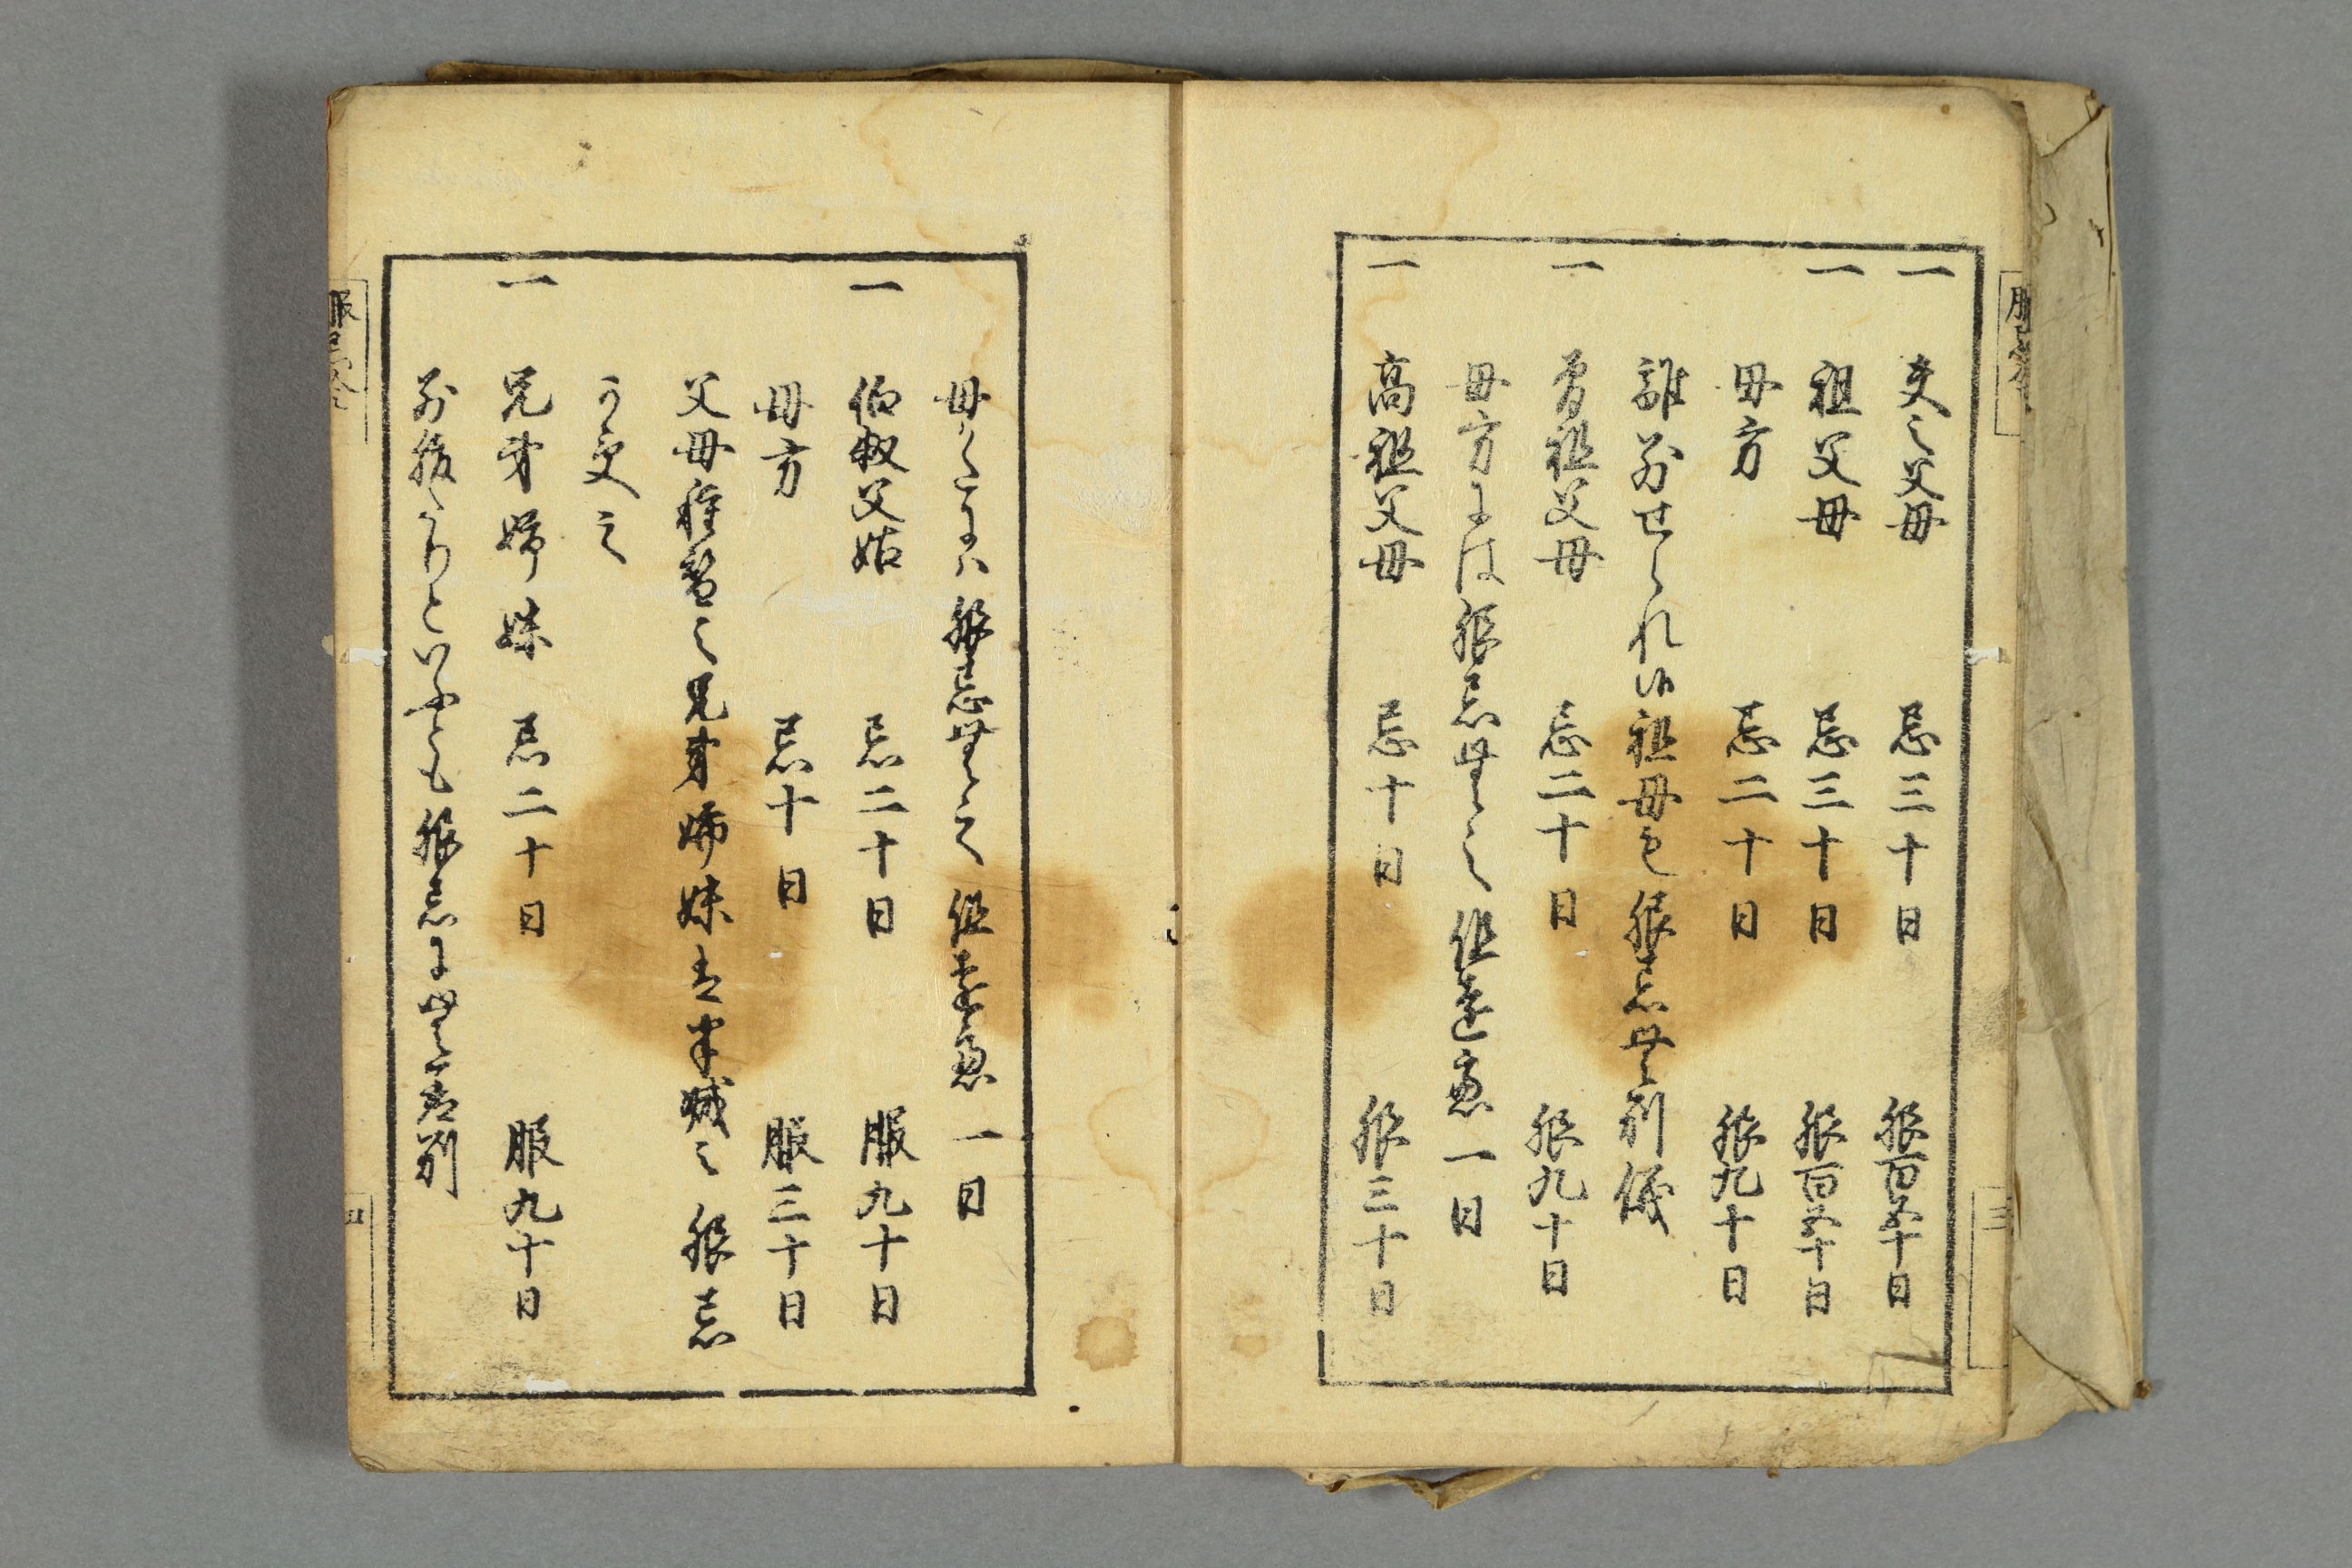 一 夫之父母 忌三十日 服百五十日
一 祖父母 忌三十日 服百五十日
母方 忌二十日 服九十日
離別せられ候祖母も服忌無別儀
一 曽祖父母 忌二十日 服九十日
母方には服忌無之但遠慮一日
一 高祖父母 忌十日 服三十日
母かたには服忌無之但遠慮一日
一 伯叔父姑 忌二十日 服九十日
母方 忌十日 服三十日
父母種替之兄弟姉妹は半減之服忌
可受之
一 兄弟姉妹 忌二十日 服九十日
別腹たりといふとも服忌に無差別
服忌令
三
四